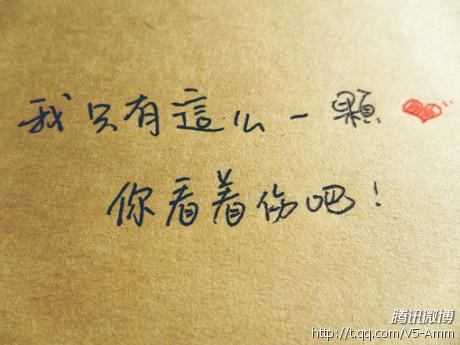 我只有這么一顆❤
你看着伤吧！
腾讯微博
http://t.qq.com/V5-Amm